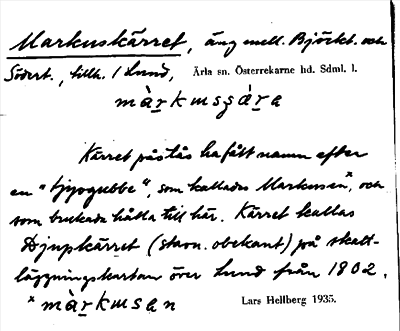 Markuskärret, äng mell. Björkt. och
Södert., tillh. 1 Lund, Ärla sn. Österrekarne hd. Sdml. l.
màrkusçǻra
Kärret påstås ha fått namn efter
en "tjyvgubbe", som kallades Markusen*, och
som brukade hålla till här. Kärret kallas
Djupkärret (stavn. obekant) på skatt-
läggningskartan över Lund från 1802.
* màrkusen
Lars Hellberg 1935.